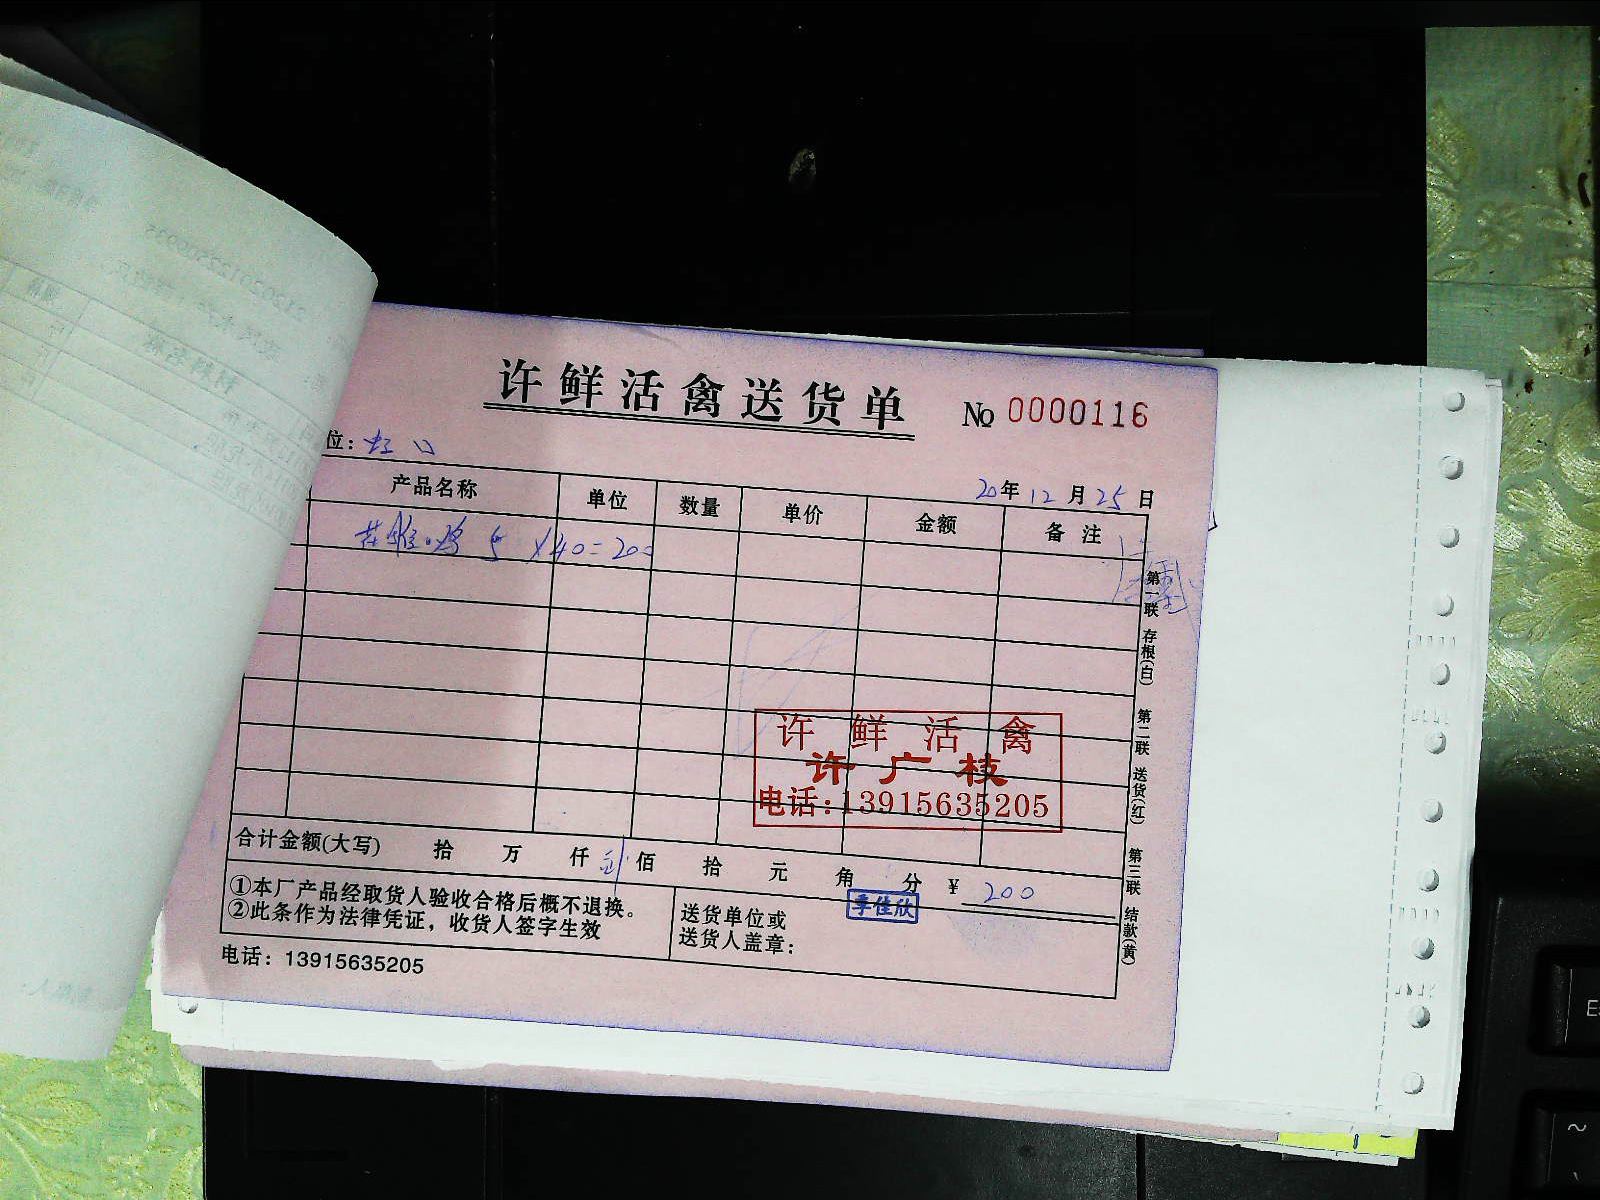 许鲜活禽送货单
No 0000116
位：虹口
20年12月25日
产品名称 单位 数量 单价 金额 备注
鸡 5 ×40=200
第一联 存根(白) 第二联 送货(红) 第三联 结款(黄)
许鲜活禽
许广枝
电话:13915635205
合计金额(大写) 拾 万 仟 佰 拾 元 角 分 ¥ 200
①本厂产品经取货人验收合格后概不退换。
②此条作为法律凭证，收货人签字生效
送货单位或
送货人盖章：
季佳欣
电话：13915635205